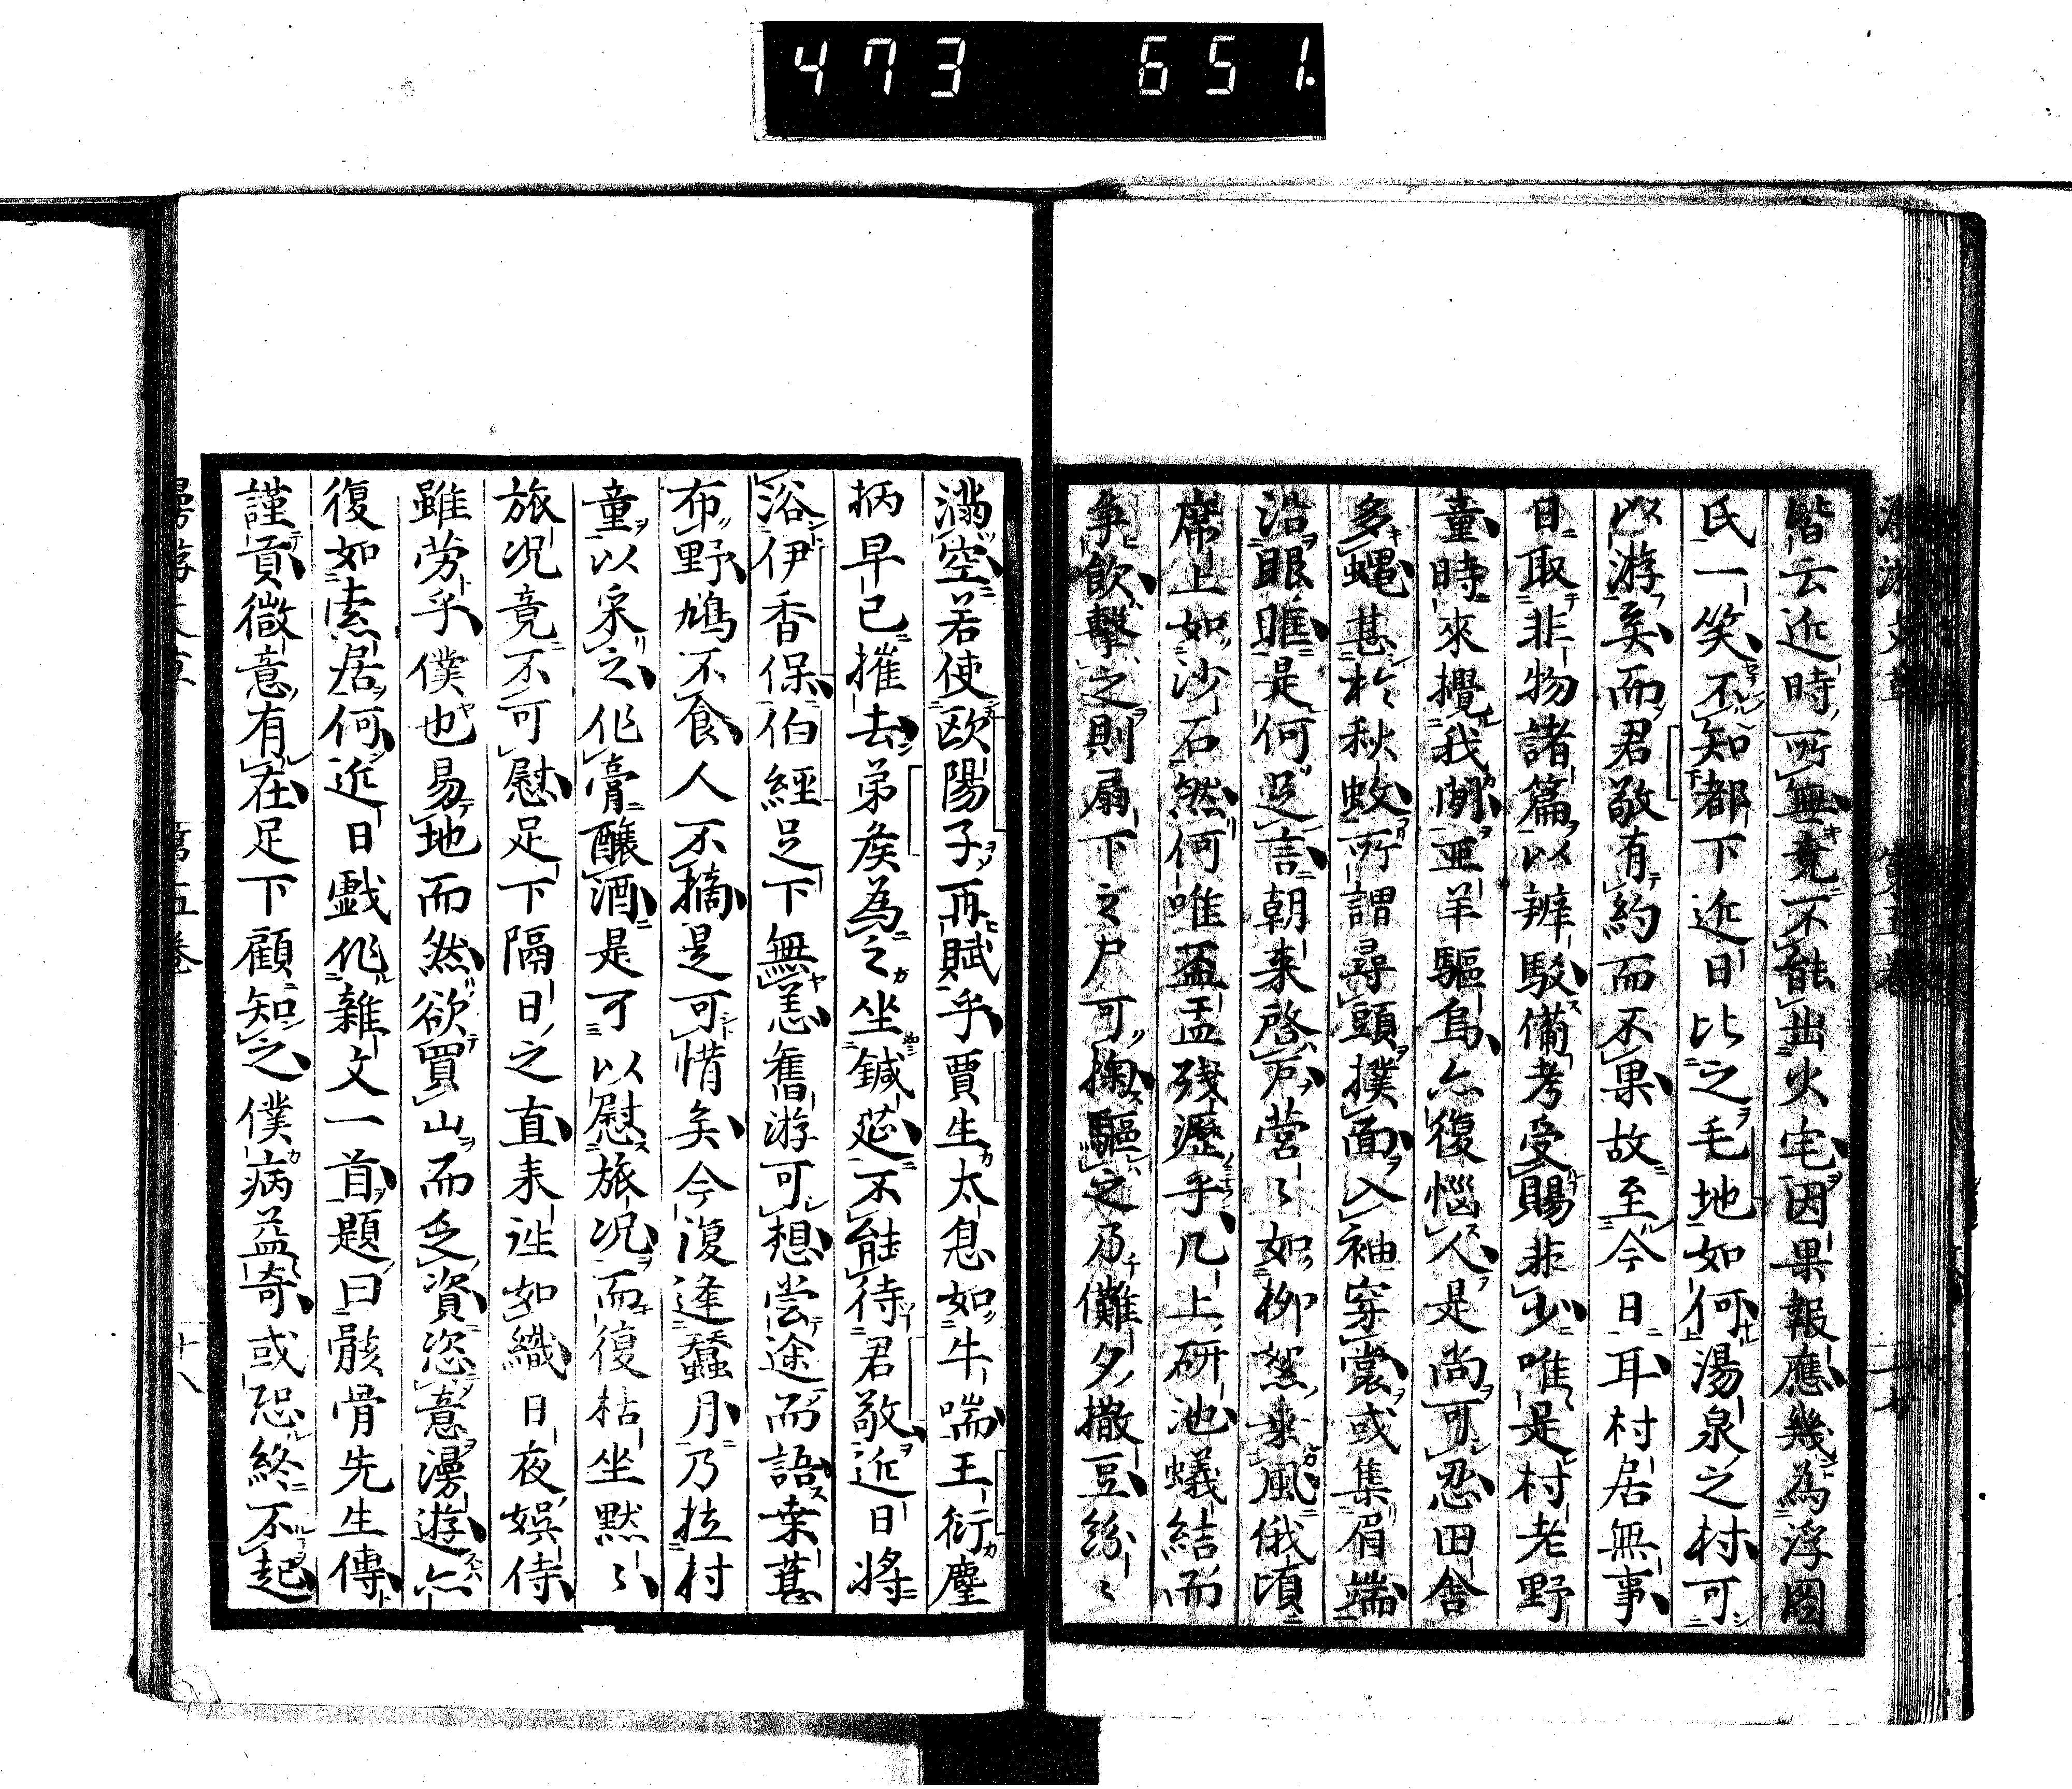 473 651
皆云近時所無竟不能出火宅因果報應幾為浮圖
氏一笑不知都下近日比之毛地如何湯泉之村可
以游矣而君敬有約而不果故至今日耳村居無事
日取非物諸篇以辨駁備考受賜非少唯是村老野
童時來攪我閒亜羊驅烏亦復惱人是尚可忍田舎
多蠅甚於秋蚊所謂尋頭撲面入袖穿裳或集眉端
沿眼眶是何足言朝来啓戸営〻如柳絮乗風俄頃
席上如沙石然何唯盃盂殘瀝乎几上研池蟻結而
争飲撃之則扇下之尸可掬驅之乃儺夕撒豆紛〻
満空若使欧陽子再賦乎賈生太息如牛喘王衍塵
柄早已摧去弟矦為之坐鍼莚不能待君敬近日将
浴伊香保伯經足下無恙舊游可想嘗途而語桒葚
布野鳩不食人不摘是可惜矣今復逢蠶月乃拉村
童以采之作膏醸酒是可以慰旅况而復枯坐黙〻
旅况竟不可慰足下隔日之直来往如織日夜娯侍
雖劳乎僕也易地而然欲買山而乏資恣意漫遊亦
復如索居何近日戯作雜文一首題曰骸骨先生傳
謹貢微意有在足下顧知之僕病益奇或恐終不起
漫游文草 第五巻 十八